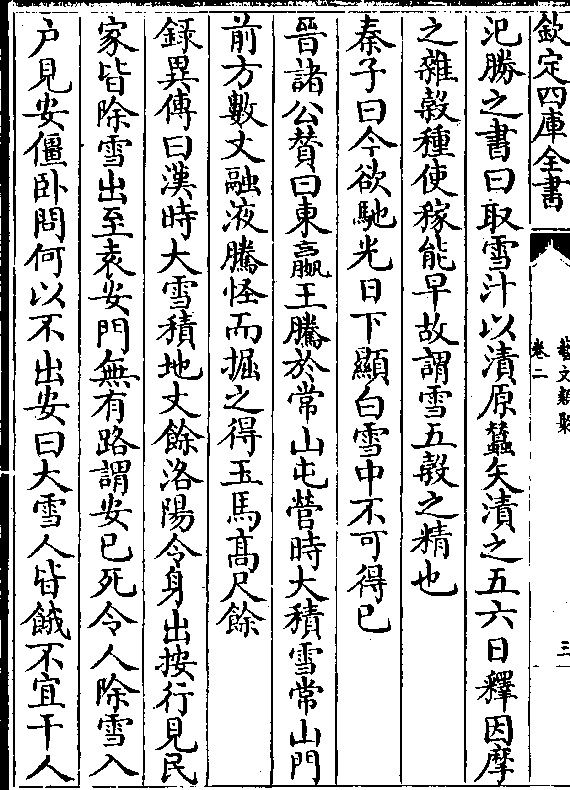 欽定四庫全書
藝文類聚
卷二
三
氾勝之書曰取雪汁以漬原蠶矢漬之五六日釋因摩
之雜穀種使稼能旱故謂雪五穀之精也
秦子曰今欲馳光日下顯白雪中不可得已
晉諸公贊曰東嬴王騰於常山屯營時大積雪常山門
前方數丈融液騰怪而掘之得玉馬髙尺餘
録異傳曰漢時大雪積地丈餘洛陽令身出按行見民
家皆除雪出至袁安門無有路謂安已死令人除雪入
户見安僵卧問何以不出安曰大雪人皆餓不宜干人